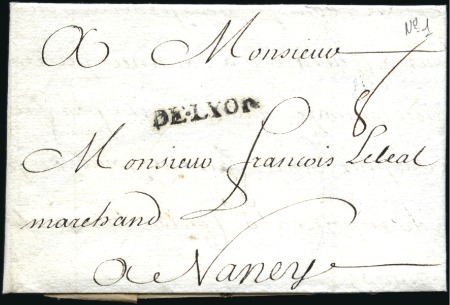 No 1
A Monsieur
8
DE·LYON
Monsieur francois Leleal
marchand
a Nancy